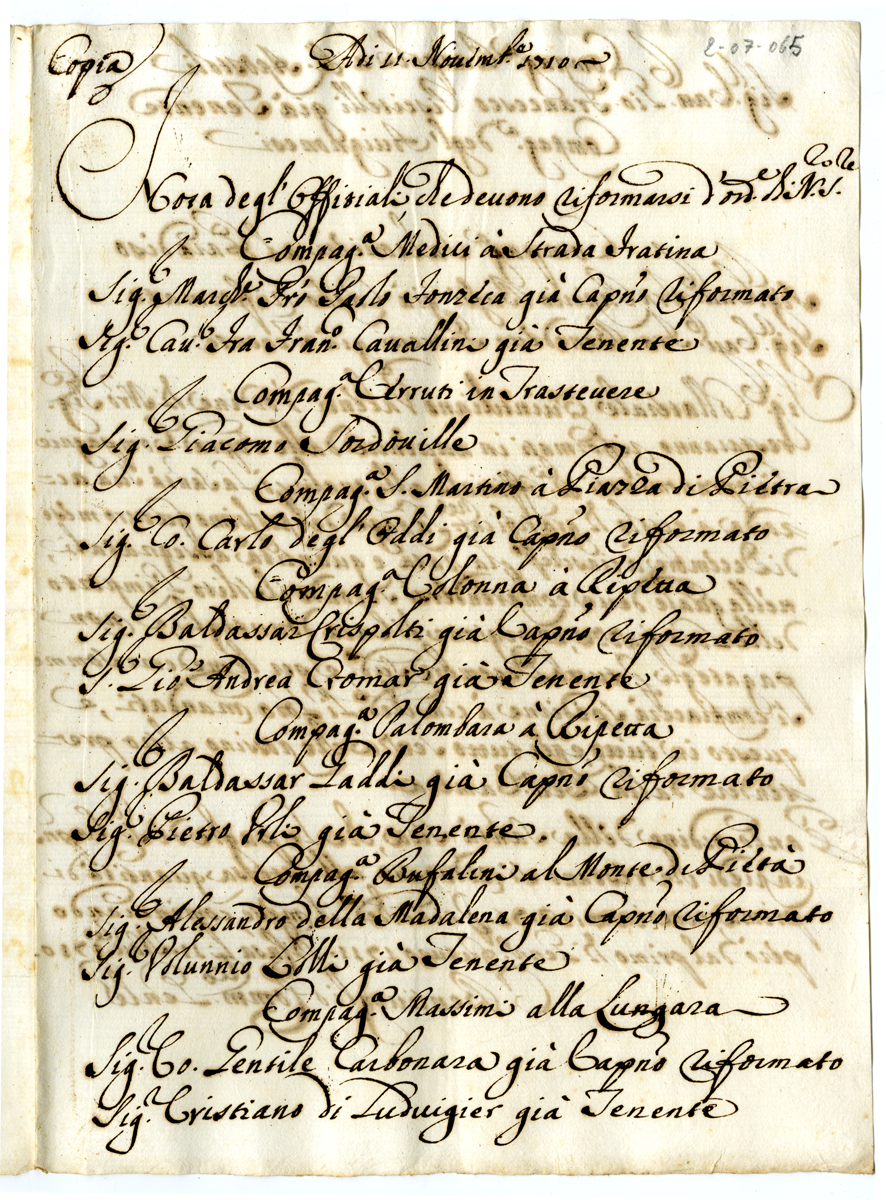 2-07-065
Copia
Adi 11. Novemb.e 1710
Nota degl' Offitiali, che devono riformarsi d'ord.e di N. S.re
Compag.a Medici à Strada Fratina
Sig.r March.e Frò Paolo Fonzeca già Cap.no riformato
Sig.r Cav.r Fra Fran.o Cavallini già Tenente
Compag.a Cerruti in Trastevere
Sig.r Giacomo Sordoville
Compag.a S. Martino à Piazza di Pietra
Sig.r Co. Carlo degl' Oddi già Cap.no riformato
Compag.a Colonna à Ripetta
Sig.r Baldassar Crispolti già Cap.no riformato
S.r Gio: Andrea Cromar già Tenente
Compag.a Palombara à Ripetta
Sig.r Baldassar Gaddi già Cap.no riformato
Sig.r Pietro Orli già Tenente
Compag.a Bufalini al Monte di Pietà
Sig.r Alessandro della Madalena già Cap.no riformato
Sig.r Volunnio Lolli già Tenente
Compag.a Massimi alla Lungara
Sig.r Co. Gentile Carbonara già Cap.no riformato
Sig.r Cristiano di Luduigier già Tenente